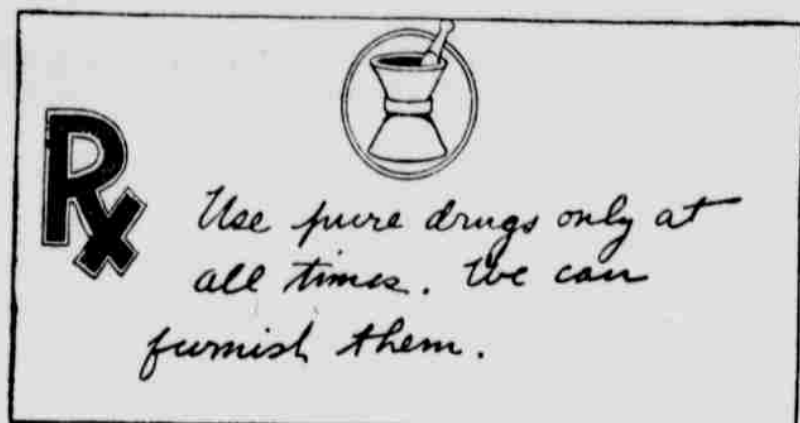 Rx
Use pure drugs only at
all times. We can
furnish them.